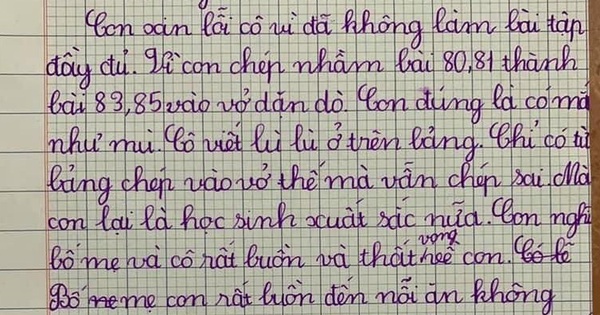 Con xin lỗi cô vì đã không làm bài tập
đầy đủ. Vì con chép nhầm bài 80,81 thành
bài 83,85 vào vở dặn dò. Con đúng là có mắ
như mù. Cô viết lù lù ở trên bảng. Chỉ có từ
bảng chép vào vở thế mà vẫn chép sai. Mà
con lại là học sinh xuất sắc nữa. Con nghĩ
bố mẹ và cô rất buồn và thất vọng về con. Có lẽ
Bố mẹ con rất buồn đến nỗi ăn không